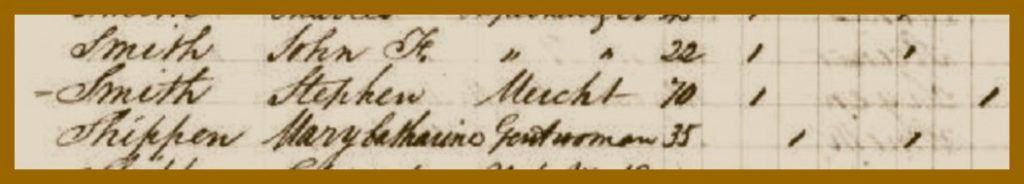 Smith John F. " " 22 1 1
- Smith Stephen Mercht 70 1 1
Shippen Mary Catharine Gentwoman 35 1 1